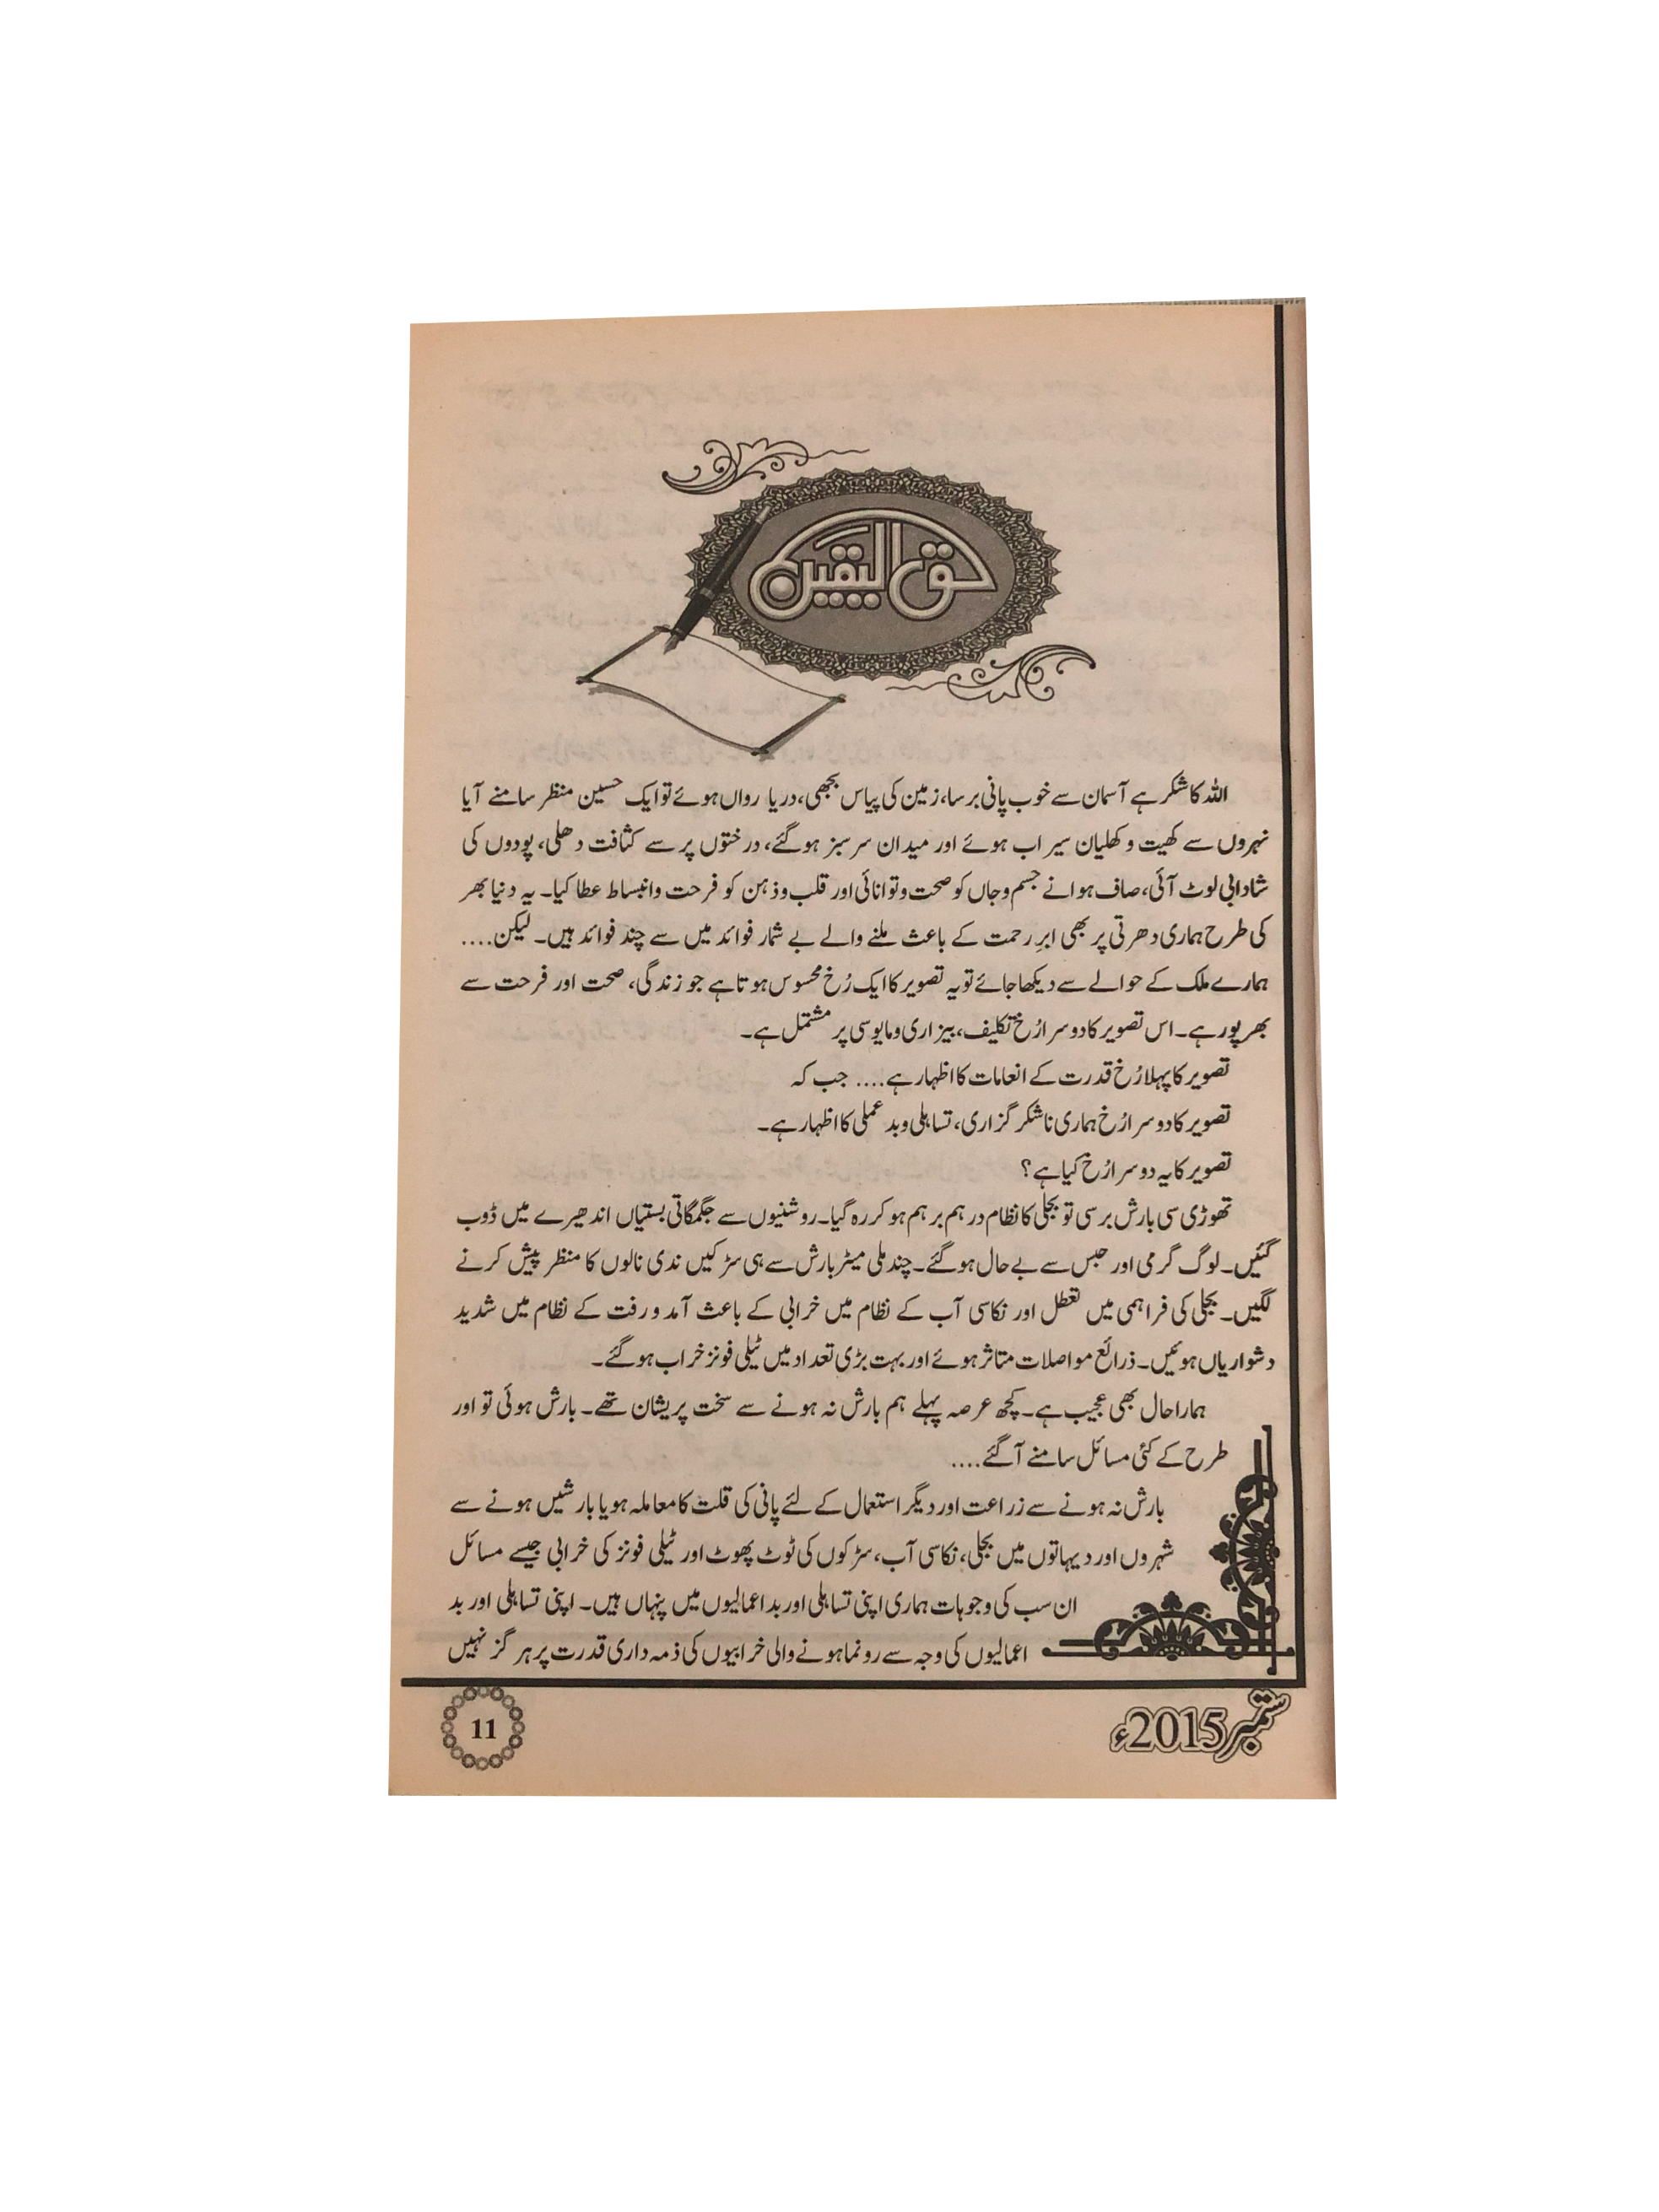 حق الیقین
اللہ کا شکر ہے آسمان سے خوب پانی برسا، زمین کی پیاس بجھی، دریا رواں ہوئے تو ایک حسین منظر سامنے آیا
نہروں سے کھیت و کھلیان سیراب ہوئے اور میدان سرسبز ہوگئے، درختوں پر سے کثافت دھلی، پودوں کی
شادابی لوٹ آئی، صاف ہوا نے جسم و جاں کو صحت و توانائی اور قلب و ذہن کو فرحت و انبساط عطا کیا۔ یہ دنیا بھر
کی طرح ہماری دھرتی پر بھی ابرِ رحمت کے باعث ملنے والے بے شمار فوائد میں سے چند فوائد ہیں۔ لیکن....
ہمارے ملک کے حوالے سے دیکھا جائے تو یہ تصویر کا ایک رُخ محسوس ہوتا ہے جو زندگی، صحت اور فرحت سے
بھرپور ہے۔ اس تصویر کا دوسرا رُخ تکلیف، بیزاری و مایوسی پر مشتمل ہے۔
تصویر کا پہلا رُخ قدرت کے انعامات کا اظہار ہے.... جب کہ
تصویر کا دوسرا رُخ ہماری ناشکر گزاری، تساہلی و بد عملی کا اظہار ہے۔
تصویر کا یہ دوسرا رُخ کیا ہے؟
تھوڑی سی بارش برسی تو بجلی کا نظام درہم برہم ہو کر رہ گیا۔ روشنیوں سے جگمگاتی بستیاں اندھیرے میں ڈوب
گئیں۔ لوگ گرمی اور حبس سے بے حال ہوگئے۔ چند ملی میٹر بارش سے ہی سڑکیں ندی نالوں کا منظر پیش کرنے
لگیں۔ بجلی کی فراہمی میں تعطل اور نکاسی آب کے نظام میں خرابی کے باعث آمد و رفت کے نظام میں شدید
دشواریاں ہوئیں۔ ذرائع مواصلات متاثر ہوئے اور بہت بڑی تعداد میں ٹیلی فونز خراب ہوگئے۔
ہمارا حال بھی عجیب ہے۔ کچھ عرصہ پہلے ہم بارش نہ ہونے سے سخت پریشان تھے۔ بارش ہوئی تو اور
طرح کے کئی مسائل سامنے آگئے....
بارش نہ ہونے سے زراعت اور دیگر استعمال کے لئے پانی کی قلت کا معاملہ ہو یا بارشیں ہونے سے
شہروں اور دیہاتوں میں بجلی، نکاسی آب، سڑکوں کی ٹوٹ پھوٹ اور ٹیلی فونز کی خرابی جیسے مسائل
ان سب کی وجوہات ہماری اپنی تساہلی اور بد اعمالیوں میں پنہاں ہیں۔ اپنی تساہلی اور بد
اعمالیوں کی وجہ سے رونما ہونے والی خرابیوں کی ذمہ داری قدرت پر ہر گز نہیں
ستمبر 2015ء
11